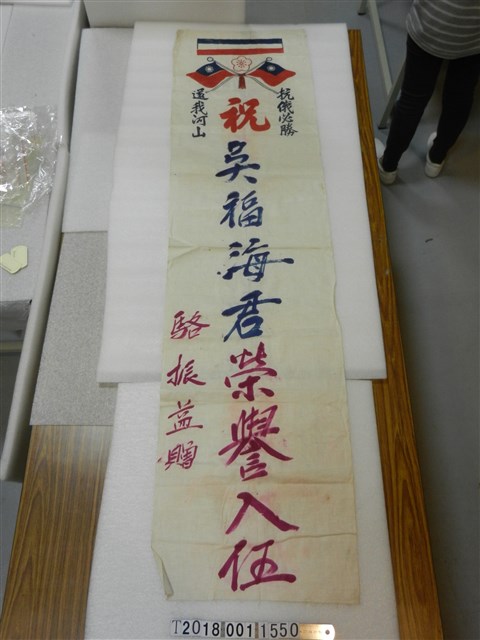 抗俄必勝
還我河山
祝吳福海君榮譽入伍
駱振益贈
T2018 001 1550